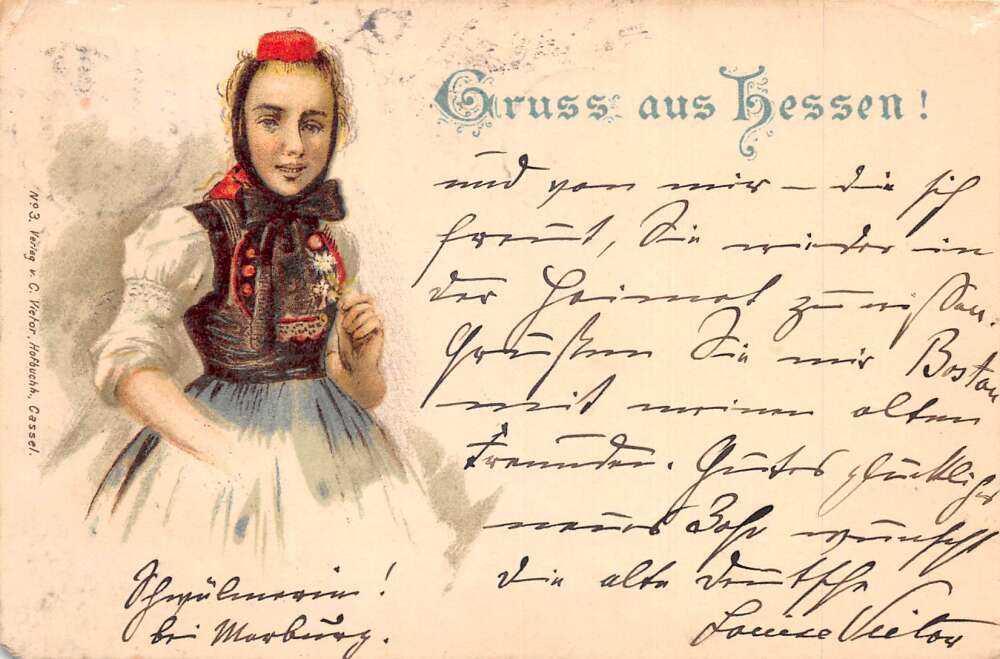 Gruss aus Hessen!
und von mir – die sich
freut, Sie wieder in
der Heimat zu wissen.
Grüßen Sie mir Boston
mit meinen alten
Freunden. Gutes glückliches
neues Jahr wünscht
die alte deutsche
Louise Vietor
Schwälmerin!
bei Marburg.
No 3. Verlag v. C. Vietor, Hofbuchh., Cassel.